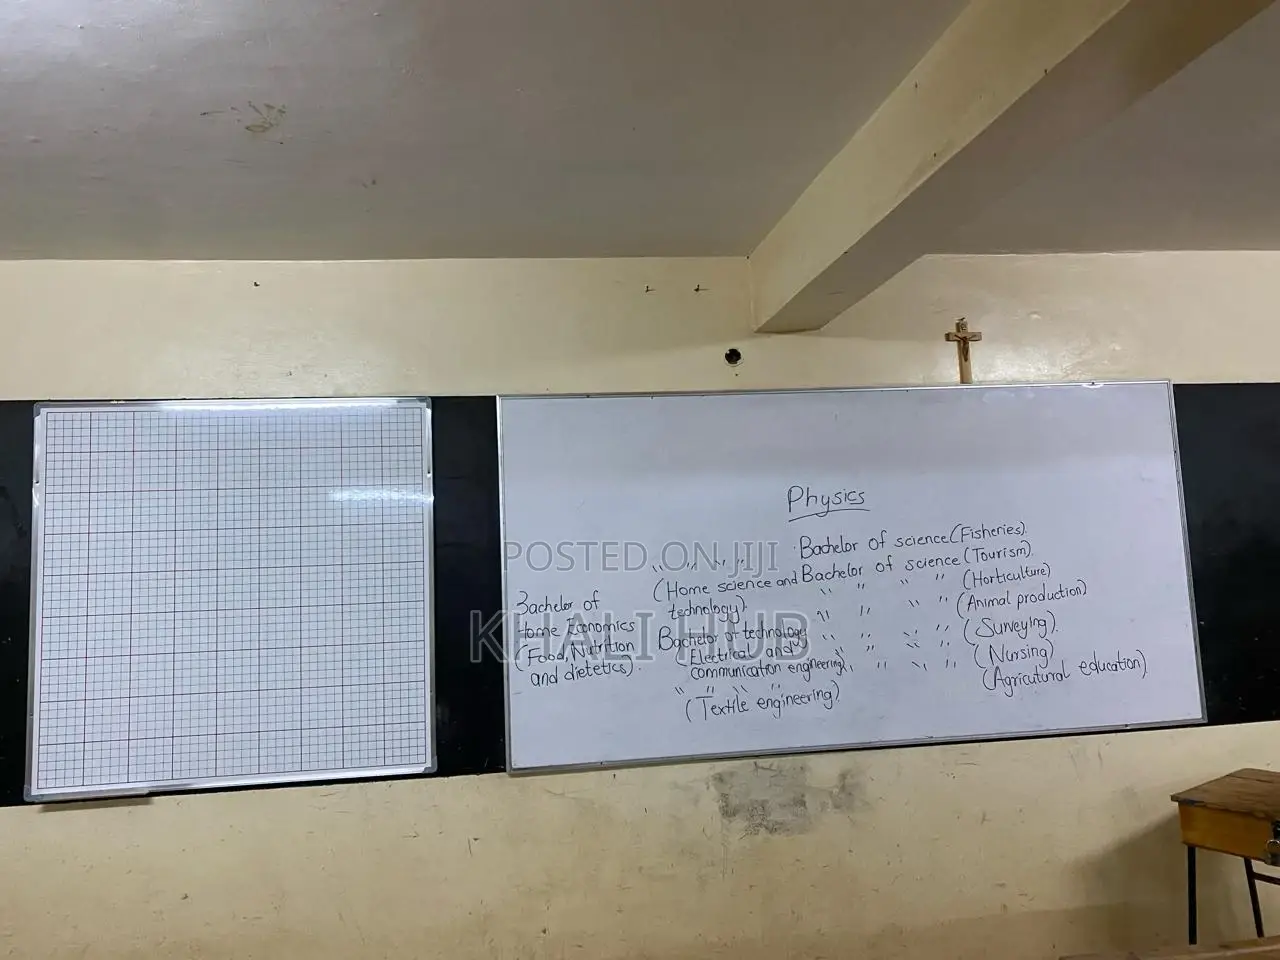 Physics
Bachelor of science (Fisheries).
Bachelor of science (Tourism).
" " " " (Horticulture)
" " " " (Animal production)
" " " " (Surveying).
" " " " (Nursing)
" " " " (Agricutural education)
" " " "
(Home science and
technology).
Bachelor of technology
(Electrical and
communication engineering).
" " " "
(Textile engineering)
Bachelor of
Home Economics
(Food, Nutrition
and dietetics).
POSTED ON JIJI
KHALI HUB